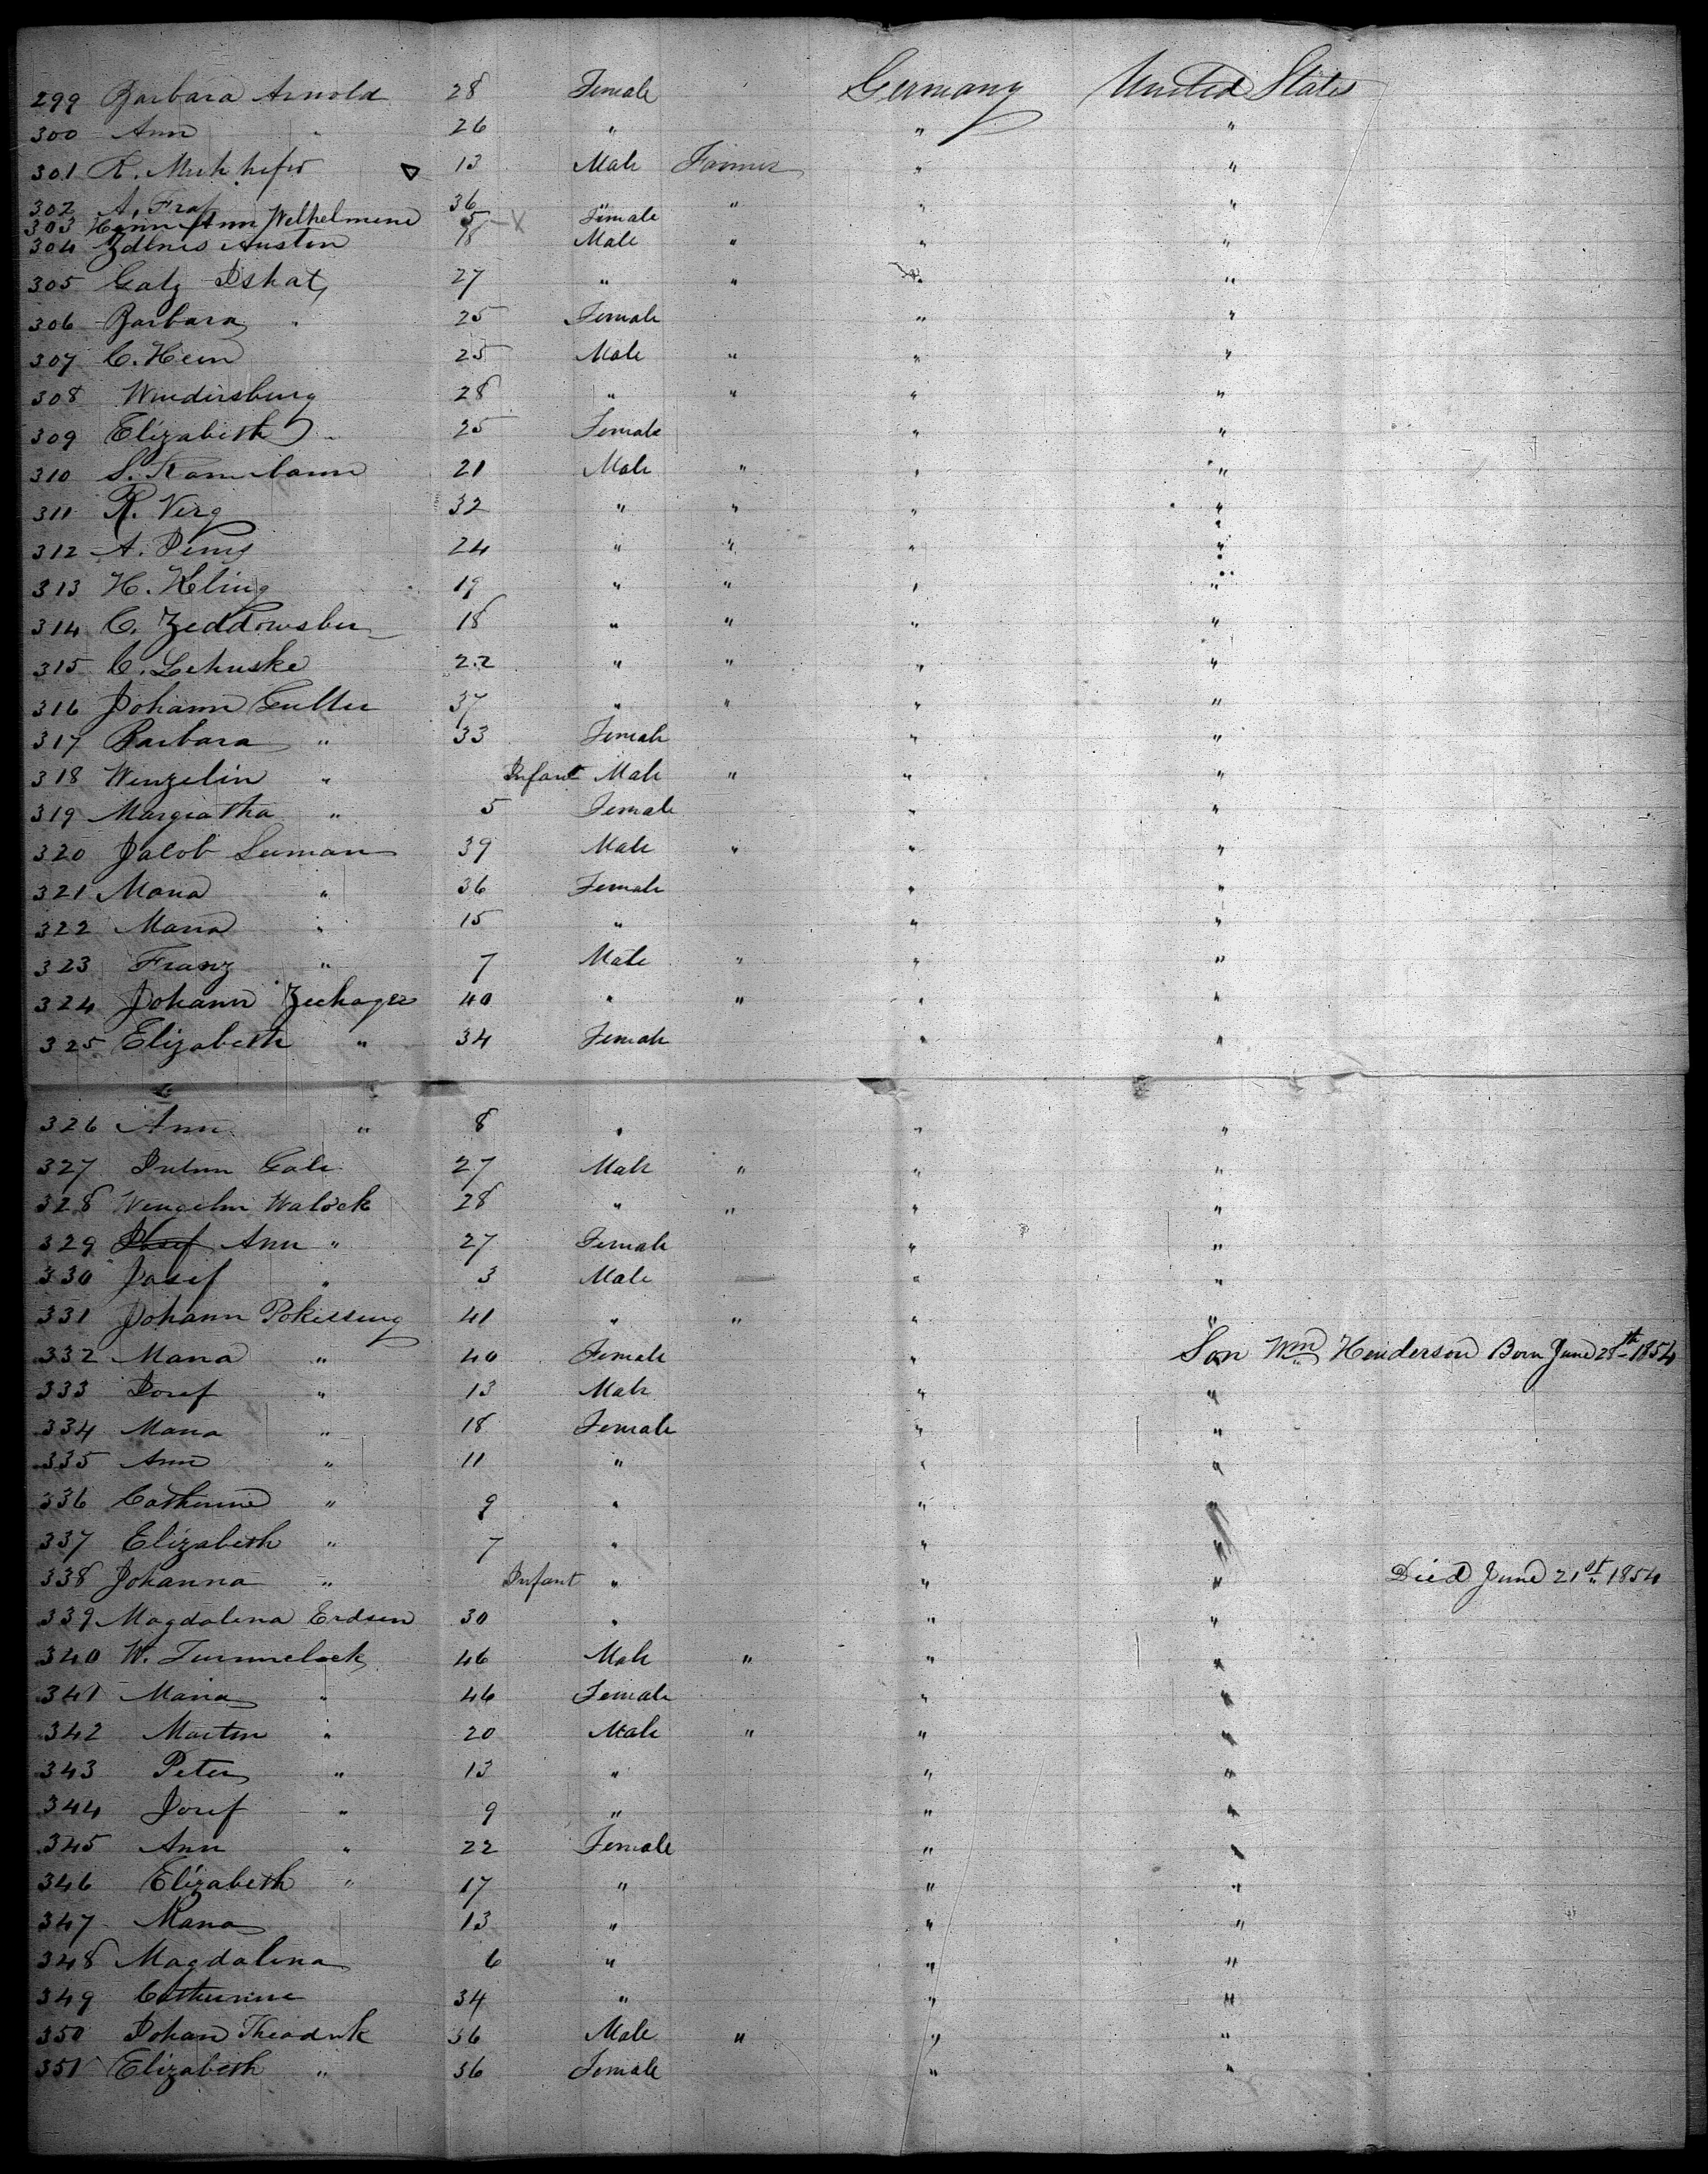 299 Barbara Arnold 28 Female Germany United States
300 Ann " 26 " " "
301 13 Male Farmer " "
302 A. 36 " " " "
303 Ann Welhelmine 5 X Female "
304 Austin 18 Male " " "
305 Gatz 27 " " " "
306 Barbara " 25 Female " "
307 C. Hein 25 Male " " "
308 Windersburg 28 " " " "
309 Elizabeth " 25 Female " "
310 S. 21 Male " " "
311 R. Verg 32 " " " "
312 A. 24 " " " "
313 H. Kling 19 " " " "
314 C. Zeddowsber 18 " " " "
315 C. Lehuske 22 " " " "
316 Johann Gutter 37 " " " "
317 Barbara " 33 Female " "
318 Wenzelin " Infant Male " " "
319 Margratha " 5 Female " "
320 Jacob Suman 39 Male " " "
321 Maria " 36 Female " "
322 Maria " 15 " " "
323 Franz " 7 Male " " "
324 Johann 40 " " " "
325 Elizabeth " 34 Female " "
326 Ann " 8 " " "
327 27 Male " " "
328 Walock 28 " " " "
329 Ann " 27 Female " "
330 Josef " 3 Male " "
331 Johann 41 " " " "
332 Maria " 40 Female " Son Wm Henderson Born June 28th 1854
333 Josef " 13 Male " "
334 Maria " 18 Female " "
335 Ann " 11 " " "
336 Catherine " 9 " " "
337 Elizabeth " 7 " " "
338 Johanna " Infant " " " Died June 21st 1854
339 Magdalena Erdsen 30 " " "
340 W. 46 Male " " "
341 Maria " 46 Female " "
342 Martin " 20 Male " " "
343 Peter " 13 " " "
344 Josef " 9 " " "
345 Ann " 22 Female " "
346 Elizabeth " 17 " " "
347 Maria 13 " " "
348 Magdalena 6 " " "
349 Catherine 34 " " "
350 Johan 36 Male " " "
351 Elizabeth " 36 Female " "